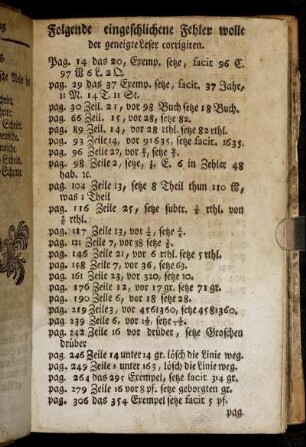 Folgende eingeschlichene Fehler wolle
der geneigte Leser corrigiren.
Pag. 14 das 20, Exemp. setze, facit 96 C.
97 ℔ 6 L. 2 Q.
pag. 29 das 37 Exemp. setze, facit. 37 Jahr,
11 M. 14 T. 11 St.
pag. 30 Zeil. 21, vor 98 Buch setze 18 Buch.
pag. 66 Zeil. 15, vor 28, setze 82.
pag. 89 Zeil. 14, vor 28 rthl. setze 82 rthl.
pag. 93 Zeile 14, vor 91635, setze facit. 1635.
pag. 96 Zeile 27, vor setze
pag. 98 Zeile 2, setze, C. 6 in Zehler 48
hab. ꝛc.
pag. 104 Zeile 13, setze 8 Theil thun 110 ℔,
was 1 Theil
pag. 116 Zeile 25, setze subtr. ½ rthl. von
rthl.
pag. 117 Zeile 13, vor setze
pag. 121 Zeile 7, vor 38 setze
pag. 146 Zeile 21, vor 6 rthl. setze 5 rthl.
pag. 158 Zeile 7, vor 36, setze 63.
pag. 161 Zeile 23, vor 320, setze 10.
pag. 176 Zeile 12, vor 17 gr. setze 71 gr.
pag. 190 Zeile 6, vor 18 setze 28.
pag. 219 Zeile 3, vor 4561360, setze 4581360.
pag. 239 Zeile 6, vor setze
pag. 242 Zeile 16 vor drüber, setze Groschen
drüber
pag. 246 Zeile 14 unter 14 gr. lösch die Linie weg.
pag. 249 Zeile 1 unter 163, lösch die Linie weg.
pag. 264 das 295 Exempel, setze facit 3¼ gr.
pag. 279 Zeile 16 vor 8 pf. setze geborgten gr.
pag. 306 das 354 Exempel setze facit 5 pf.
pag.